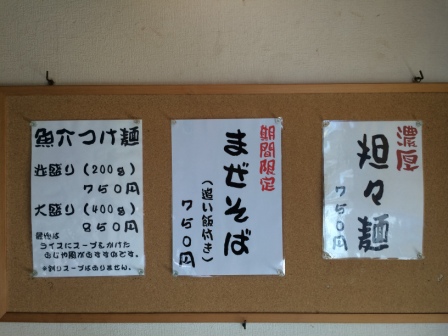 魚介つけ麺
並盛り(200g)
750円
大盛り(400g)
850円
最後は
ライスにスープをかけた
おじや風がおすすめです。
*割りスープはありません。
期間限定
まぜそば
(追い飯付き)
750円
濃厚
担々麺
750円